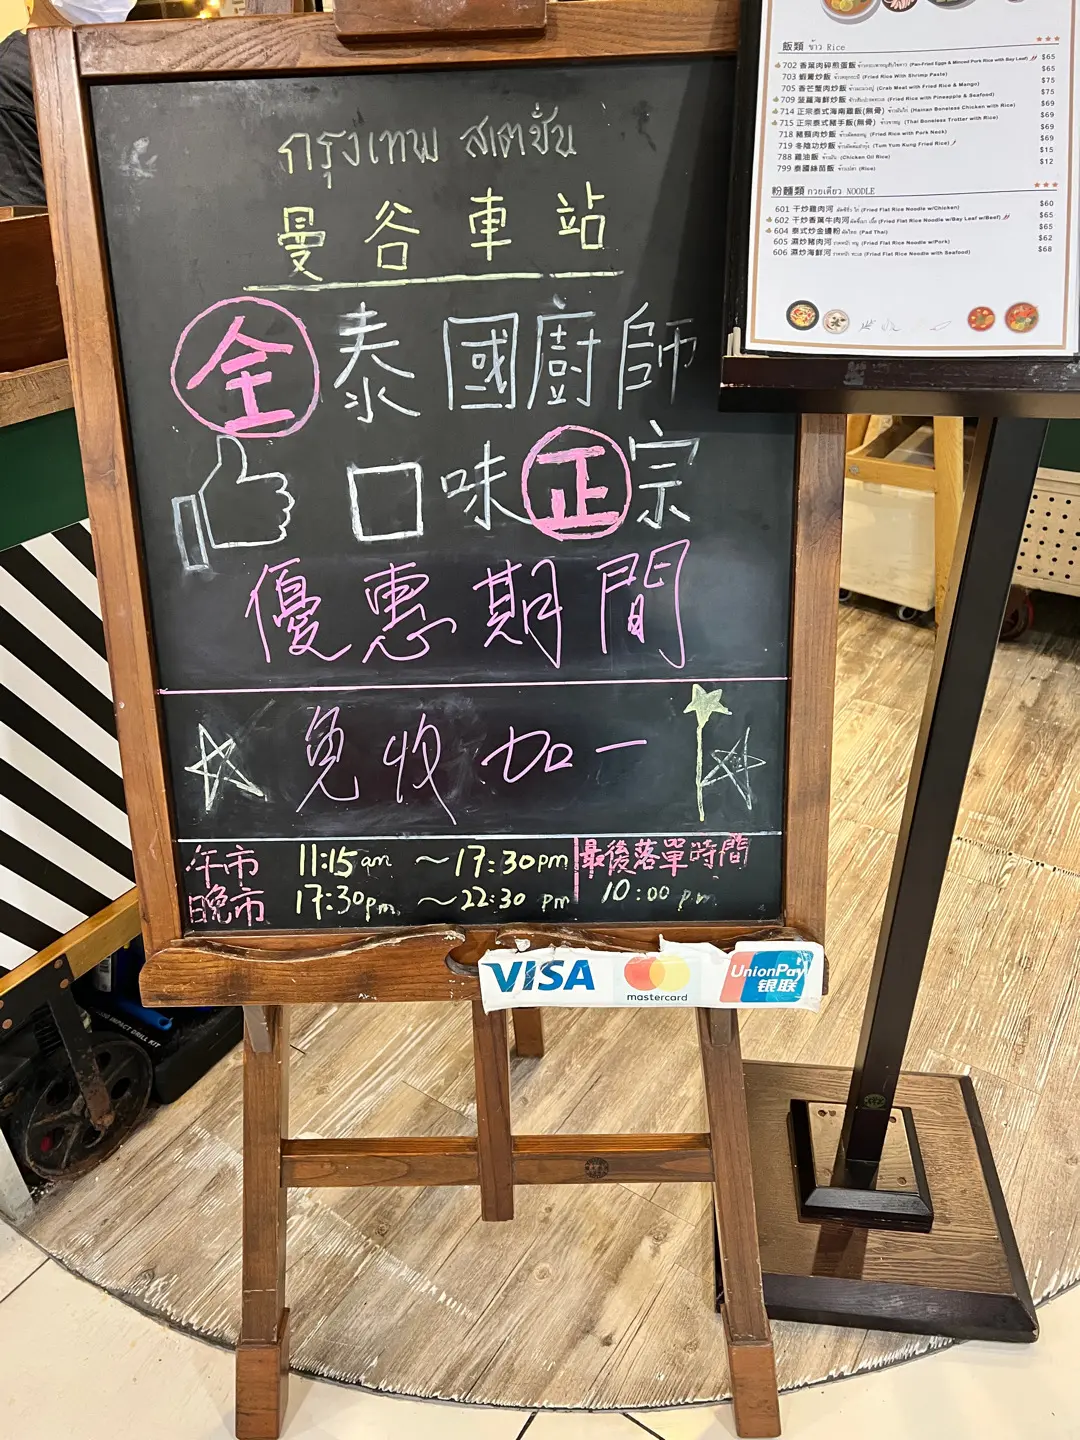 กรุงเทพ สเตชั่น
曼谷車站
全泰國廚師
口味正宗
優惠期間
免收加一
午市 11:15am ~17:30pm
晚市 17:30pm ~22:30 pm
最後落單時間
10:00 pm
VISA
mastercard
UnionPay
银联
飯類 ข้าว Rice
702 香葉肉碎煎蛋飯 (Pan-Fried Eggs & Minced Pork Rice with Bay Leaf) $65
703 蝦醬炒飯 (Fried Rice With Shrimp Paste) $65
705 香芒蟹肉炒飯 (Crab Meat with Fried Rice & Mango) $75
709 菠蘿海鮮炒飯 (Fried Rice with Pineapple & Seafood) $75
714 正宗泰式海南雞飯(無骨) (Hainan Boneless Chicken with Rice) $69
715 正宗泰式豬手飯(無骨) (Thai Boneless Trotter with Rice) $69
718 豬頸肉炒飯 (Fried Rice with Pork Neck) $69
719 冬陰功炒飯 (Tum Yum Kung Fried Rice) $69
788 雞油飯 (Chicken Oil Rice) $15
799 泰國絲苗飯 (Rice) $12
粉麵類 ก๋วยเตี๋ยว NOODLE
601 干炒雞肉河 (Fried Flat Rice Noodle w/Chicken) $60
602 干炒香葉牛肉河 (Fried Flat Rice Noodle w/Bay Leaf w/Beef) $65
604 泰式炒金邊粉 ผัดไทย (Pad Thai) $65
605 濕炒豬肉河 (Fried Flat Rice Noodle w/Pork) $62
606 濕炒海鮮河 (Fried Flat Rice Noodle with Seafood) $68
IMPACT DRILL KIT